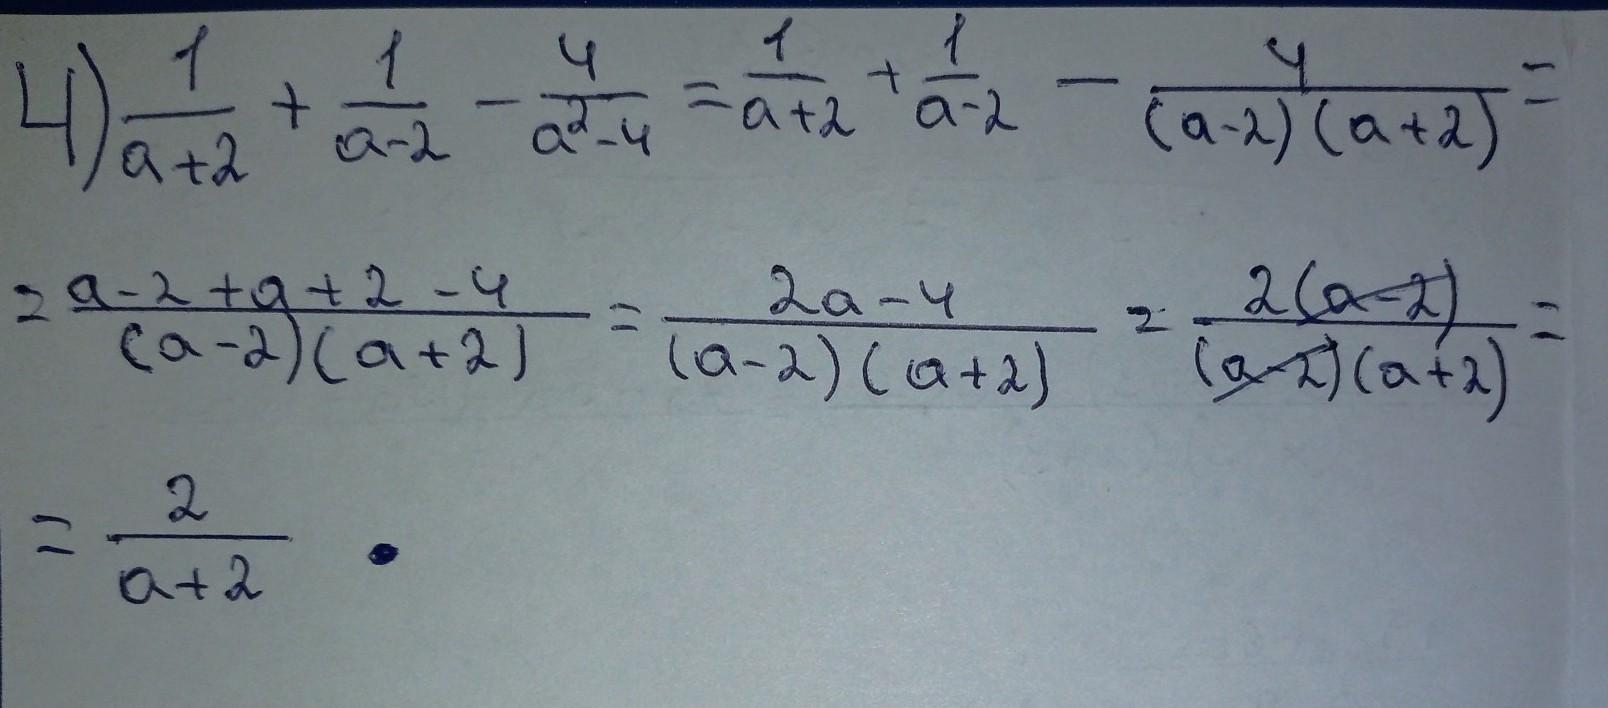 4) 1/(a+2) + 1/(a-2) - 4/(a²-4) = 1/(a+2) + 1/(a-2) - 4/((a-2)(a+2)) =
= (a-2+a+2-4)/((a-2)(a+2)) = (2a-4)/((a-2)(a+2)) = 2(a-2)/((a-2)(a+2)) =
= 2/(a+2) .